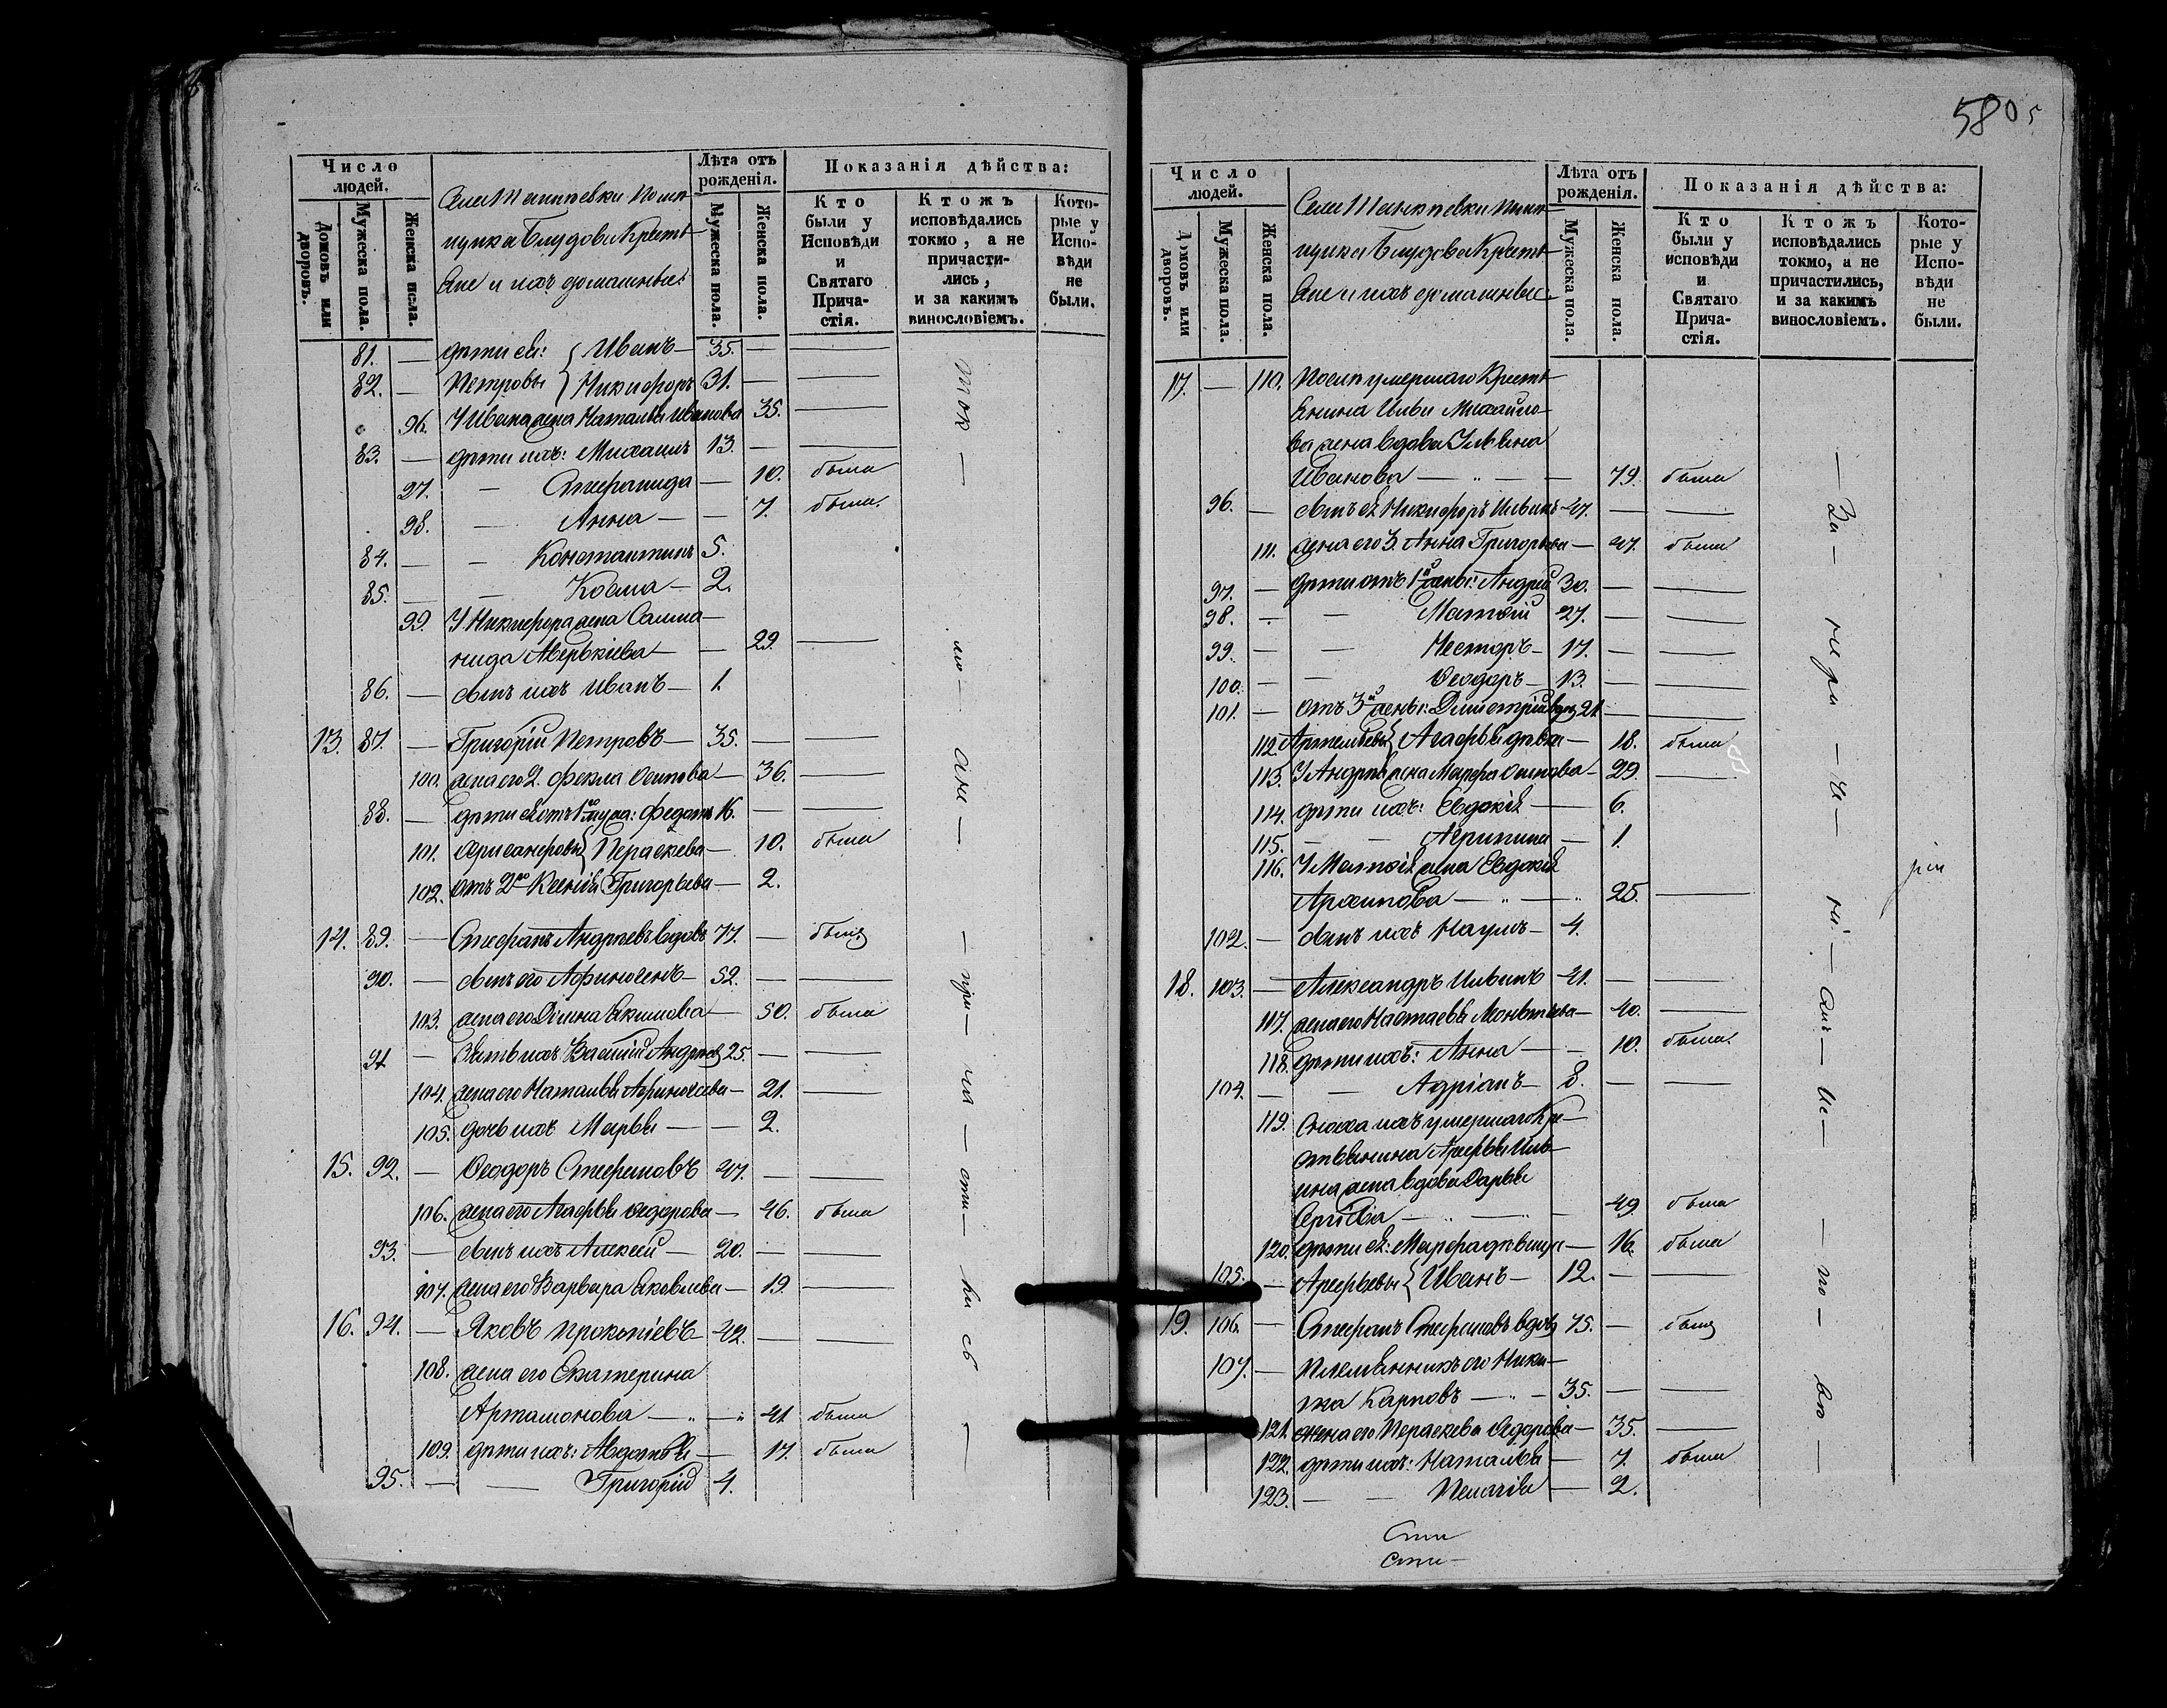 Число людей.
Домовъ или дворовъ.
Мужеска пола.
Женска пола.
помѣ-
щика Блудова Крестья-
не и ихъ домашные:
Лѣта отъ рожденія.
Мужеска пола.
Женска пола.
Показанія дѣйства:
Кто были у Исповѣди и Святаго Прича-стія.
Ктожъ исповѣдались токмо, а не причасти-лись, и за какимъ винословіемъ.
Кото-рые у Испо-вѣди не были.
81. — дѣти ея: { Иванъ — 35. — —
82. — Петровы { Никифоръ 31. — —
96. У Ивана жена Наталья Иванова 35. —
83. — дѣти ихъ: Михаилъ 13. — —
97. — — 10. была
98. — Анна — — 7. была
84. — — Константинъ 5.
85. — — Косма — 2.
99. У Никифора жена Соломо-
нида Аверкіева — — 29. —
86. — сынъ ихъ Иванъ — 1.
13. 87. — Григорій Петровъ — 35. — —
100. жена его 2. Фекла Осипова — 36. —
88. — дѣти ея отъ 1го мужа: Федотъ 16. — —
101. { Параскева — 10. была
102. отъ 2го Ксенія Григорьева — 2.
14. 89. — Стефанъ Андреевъ вдовъ 77. — былъ
90. — сынъ его Афиногенъ — 52. — —
103. жена его Якимова — 50. была
91 — Зять ихъ Василій Андреевъ 25. — —
104. жена его Наталья Афиногенова — 21. —
105. дочь ихъ Марья — — 2.
15. 92. — Ѳеодоръ Стефановъ 47. — —
106. жена его Агафья Ѳедорова — 46. была
93. — сынъ ихъ Алексей — 20. — —
107. жена его Варвара Яковлева — 19. —
16. 94. — Яковъ Прокопіевъ — 42. — —
108. жена его Екатерина
Артамонова — — 41 была
109. дѣти ихъ: Авдотья — 17. была
95. — — Григорій 4.
580
Число людей.
Домовъ или дворовъ.
Мужеска пола.
Женска пола.
помѣ-
щика Блудова Крестья-
не и ихъ домашные:
Лѣта отъ рожденія.
Мужеска пола.
Женска пола.
Показанія дѣйства:
Кто были у исповѣди и Святаго Прича-стія.
Ктожъ исповѣдались токмо, а не причастились, и за какимъ винословіемъ.
Кото-рые у Испо-вѣди не были.
17. — 110. Послѣ умершаго Кресть-
янина Ильи Михайло-
ва жена вдова Ульяна
Иванова — — — 79. была
96. — сынъ ея Никифоръ Ильинъ 47. — —
111. жена его 3. Анна Григорьева — 47. была
97. — дѣти отъ 1й жены: Андрей 30. — —
98. — — Матвѣй 27. — —
99. — — Несторъ — 17. — —
100. — — Ѳеодоръ — 13. — —
101. — отъ 3й жены: Димитрій 21. — —
112. { Агафья дѣвка — 18. была
113. У Андрея жена Марфа Осипова — 29. —
114. дѣти ихъ: Евдокія — 6.
115. — — Агрипина — 1.
116. У Матвѣя жена Евдокія
Архипова — — 25. —
102. — сынъ ихъ Наумъ — 4.
18. 103. — Александръ Ильинъ 41. — —
117. жена его Настасья — 40. —
118. дѣти ихъ: Анна — — 10. была.
104. — — Адріанъ — 8. — —
119. Сноха ихъ умершаго Кре-
стьянина Арефья Иль-
ина жена вдова Дарья
Сергіева — — — 49. была
120. дѣти ея: Марфа дѣвица — 16. была
105. — Арефьевы { Иванъ — 12. — —
19. 106. — Стефанъ Стефановъ вдовъ 75. — былъ
107. — Племянникъ его Ники-
та Карповъ — — 35. — —
121. жена его Параскева Ѳедорова — 35. —
122. дѣти ихъ: Наталья — 7. была
123. — — Пелагія — 2.